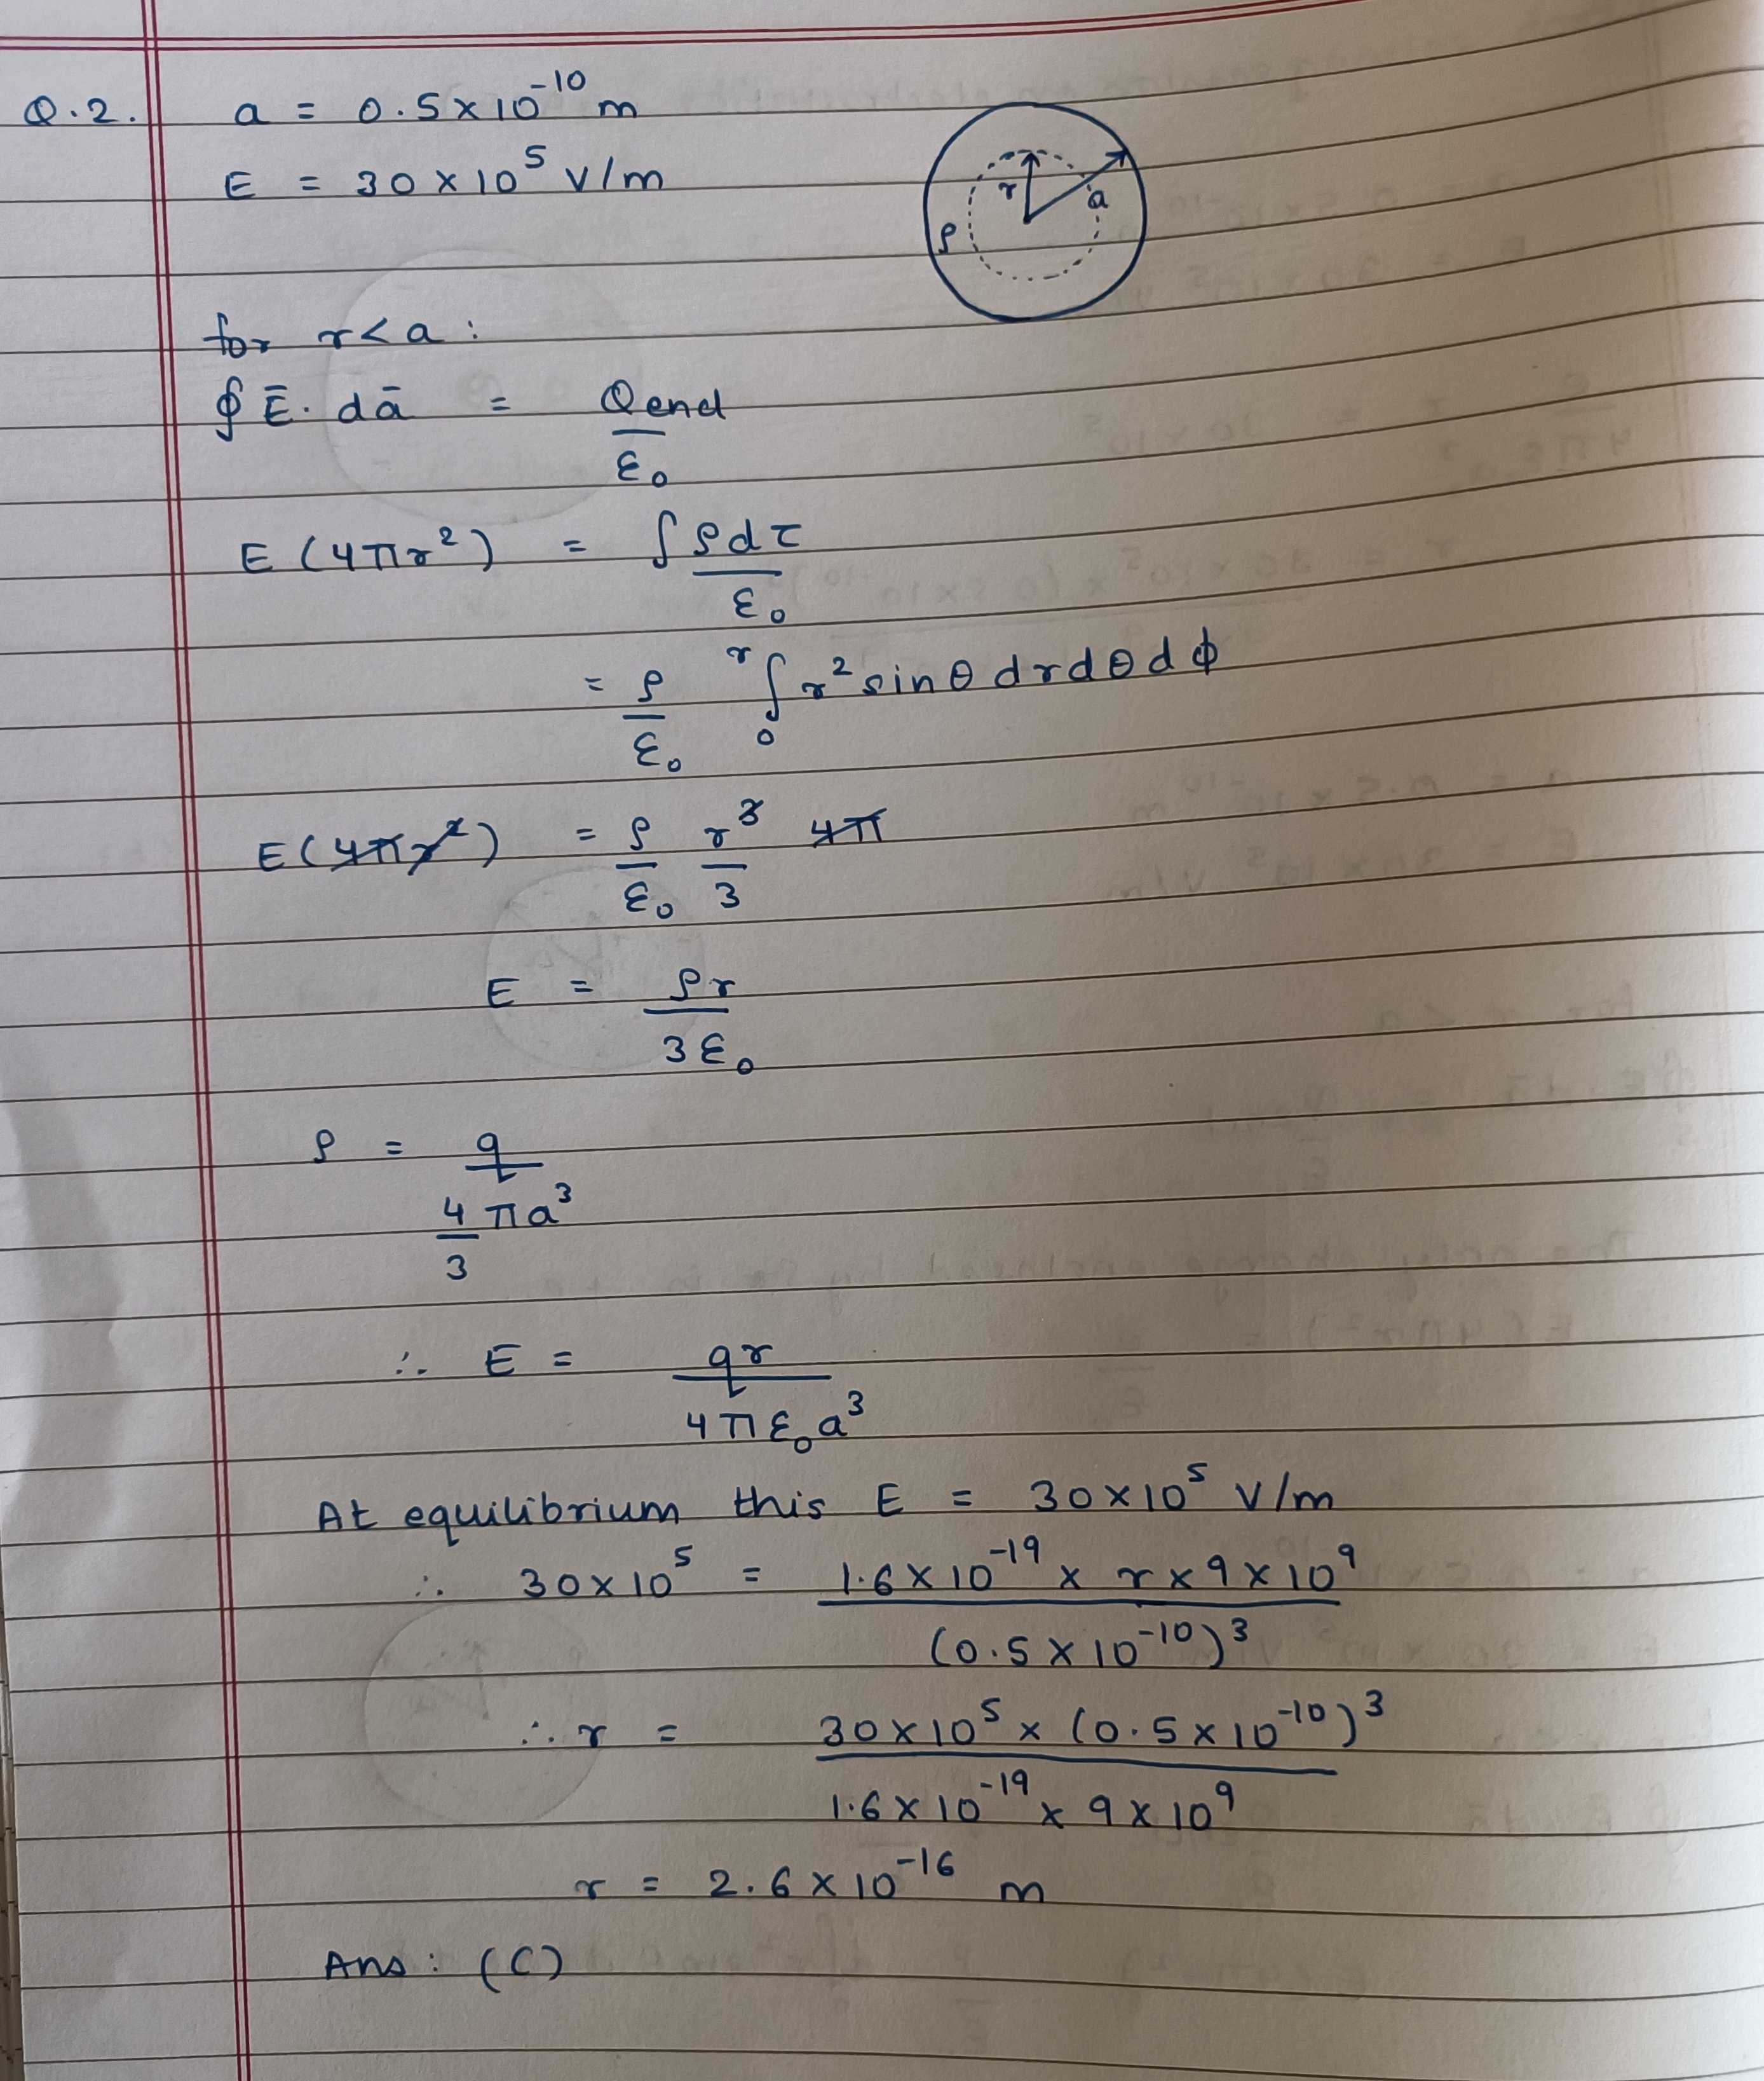 Q.2. a = 0.5 × 10⁻¹⁰ m
E = 30 × 10⁵ V/m
r a
ρ
for r < a :
∮ Ē. dā = Qencl / ε₀
E (4πr²) = ∫ ρdτ / ε₀
= ρ/ε₀ ₀ʳ∫ r² sinθ dr dθ dϕ
E(4πr²) = ρ/ε₀ r³/3 4π
E = ρr / 3ε₀
ρ = q / (4/3 πa³)
∴ E = qr / 4πε₀a³
At equilibrium this E = 30×10⁵ V/m
∴ 30×10⁵ = 1.6×10⁻¹⁹ × r × 9×10⁹ / (0.5×10⁻¹⁰)³
∴ r = 30×10⁵ × (0.5×10⁻¹⁰)³ / 1.6×10⁻¹⁹ × 9×10⁹
r = 2.6×10⁻¹⁶ m
Ans : (C)